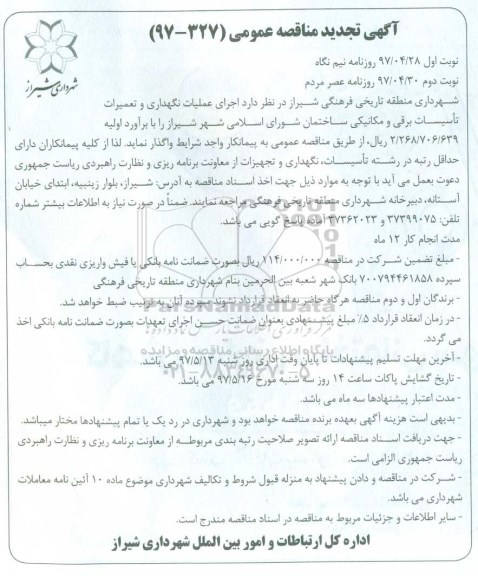 آگهی تجدید مناقصه عمومی (۳۲۷-۹۷)
شهرداری شیراز
نوبت اول ۹۷/۰۴/۲۸ روزنامه نیم نگاه
نوبت دوم ۹۷/۰۴/۳۰ روزنامه عصر مردم
شهرداری منطقه تاریخی فرهنگی شیراز در نظر دارد اجرای عملیات نگهداری و تعمیرات
تأسیسات برقی و مکانیکی ساختمان شورای اسلامی شهر شیراز را با برآورد اولیه
۲/۲۶۸/۷۰۶/۶۳۹ ریال، از طریق مناقصه عمومی به پیمانکار واجد شرایط واگذار نماید. لذا از کلیه پیمانکاران دارای
حداقل رتبه در رشته تأسیسات، نگهداری و تجهیزات از معاونت برنامه ریزی و نظارت راهبردی ریاست جمهوری
دعوت بعمل می آید با توجه به موارد ذیل جهت اخذ اسناد مناقصه به آدرس: شیراز، بلوار زینبیه، ابتدای خیابان
آستانه، دبیرخانه شهرداری منطقه تاریخی فرهنگی مراجعه نمایند. ضمناً در صورت نیاز به اطلاعات بیشتر شماره
تلفن: ۳۷۳۹۹۰۷۵ و ۳۷۳۶۲۰۲۳ آماده پاسخ گویی می باشد.
مدت انجام کار ۱۲ ماه
- مبلغ تضمین شرکت در مناقصه ۱۱۴/۰۰۰/۰۰۰ ریال بصورت ضمانت نامه بانکی یا فیش واریزی نقدی بحساب
سپرده ۷۰۰۷۹۴۴۶۱۸۵۸ بانک شهر شعبه بین الحرمین بنام شهرداری منطقه تاریخی فرهنگی
- برندگان اول و دوم مناقصه هرگاه حاضر به انعقاد قرارداد نشوند سپرده آنان به ترتیب ضبط خواهد شد.
- در زمان انعقاد قرارداد ۵٪ مبلغ پیشنهادی بعنوان ضمانت حسن اجرای تعهدات بصورت ضمانت نامه بانکی اخذ
می گردد.
- آخرین مهلت تسلیم پیشنهادات تا پایان وقت اداری روز شنبه ۹۷/۵/۱۳ می باشد.
- تاریخ گشایش پاکات ساعت ۱۴ روز سه شنبه مورخ ۹۷/۵/۱۶ می باشد.
- مدت اعتبار پیشنهادها سه ماه می باشد.
- بدیهی است هزینه آگهی بعهده برنده مناقصه خواهد بود و شهرداری در رد یک یا تمام پیشنهادها مختار میباشد.
- جهت دریافت اسناد مناقصه ارائه تصویر صلاحیت رتبه بندی مربوطه از معاونت برنامه ریزی و نظارت راهبردی
ریاست جمهوری الزامی است.
- شرکت در مناقصه و دادن پیشنهاد به منزله قبول شروط و تکالیف شهرداری موضوع ماده ۱۰ آئین نامه معاملات
شهرداری می باشد.
- سایر اطلاعات و جزئیات مربوط به مناقصه در اسناد مناقصه مندرج است.
اداره کل ارتباطات و امور بین الملل شهرداری شیراز
ParsNamadData
پایگاه اطلاع رسانی مناقصه و مزایده